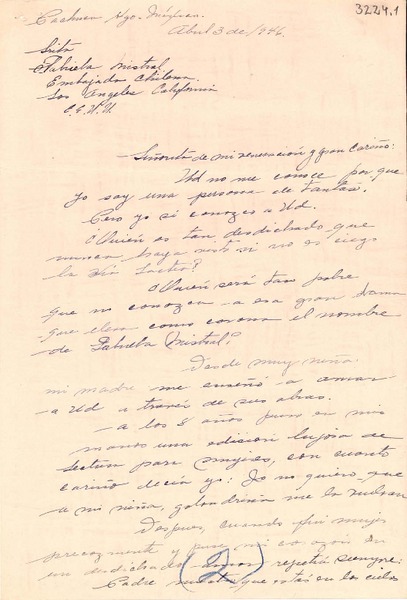 3224.1
Pachuca Hgo. Méjico.
Abril 3 de 1946.
Srita
Gabriela Mistral.
Embajada Chilena.
Los Angeles California
E.E.U.U.
Señorita de mi veneración y gran cariño:
Ud no me conoce por que
yo soy una persona de tantas.
Pero yo si conozco a Ud.
¿Quién es tan desdichado que
nunca haya visto si no es ciego
la Vía Lactea?
¿Quién será tan pobre
que no conozca a esa gran dama
que lleva como corona el nombre
de Gabriela Mistral?
Desde muy niña
mi madre me enseñó a amar
a Ud a través de sus obras.
a los 8 años puso en mis
manos una edición lujosa de
Lectura para mujeres, con cuanto
cariño decía yo: Yo no quiero que
a mi niña, golondrina me la vuelvan
Después, cuando fuí mujer
precozmente y puse mi corazón en
un desdichado amor repetía siempre:
Padre nuestro que estás en los cielos
(2)